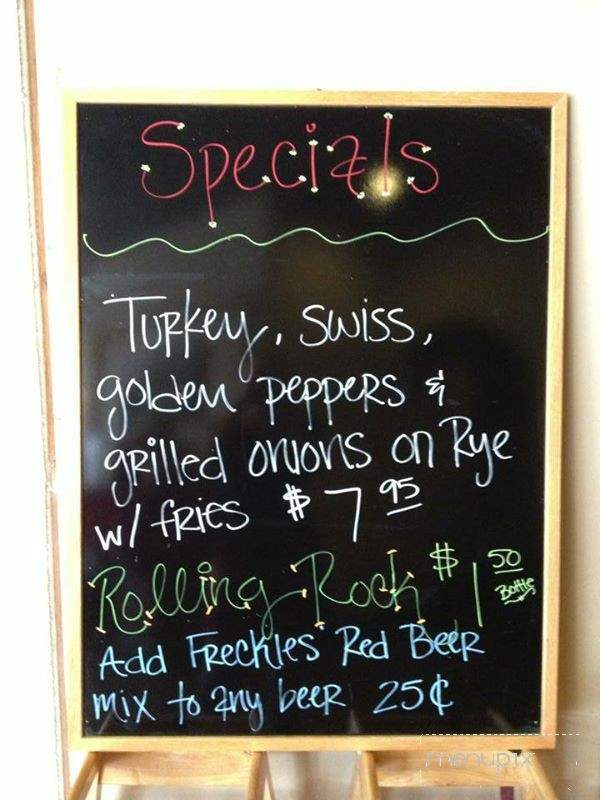 Specials
Turkey, Swiss,
golden peppers &
grilled onions on Rye
w/ fries $7 95
Rolling Rock $1 50
Bottle
Add Freckles Red Beer
mix to any beer 25¢
menupix